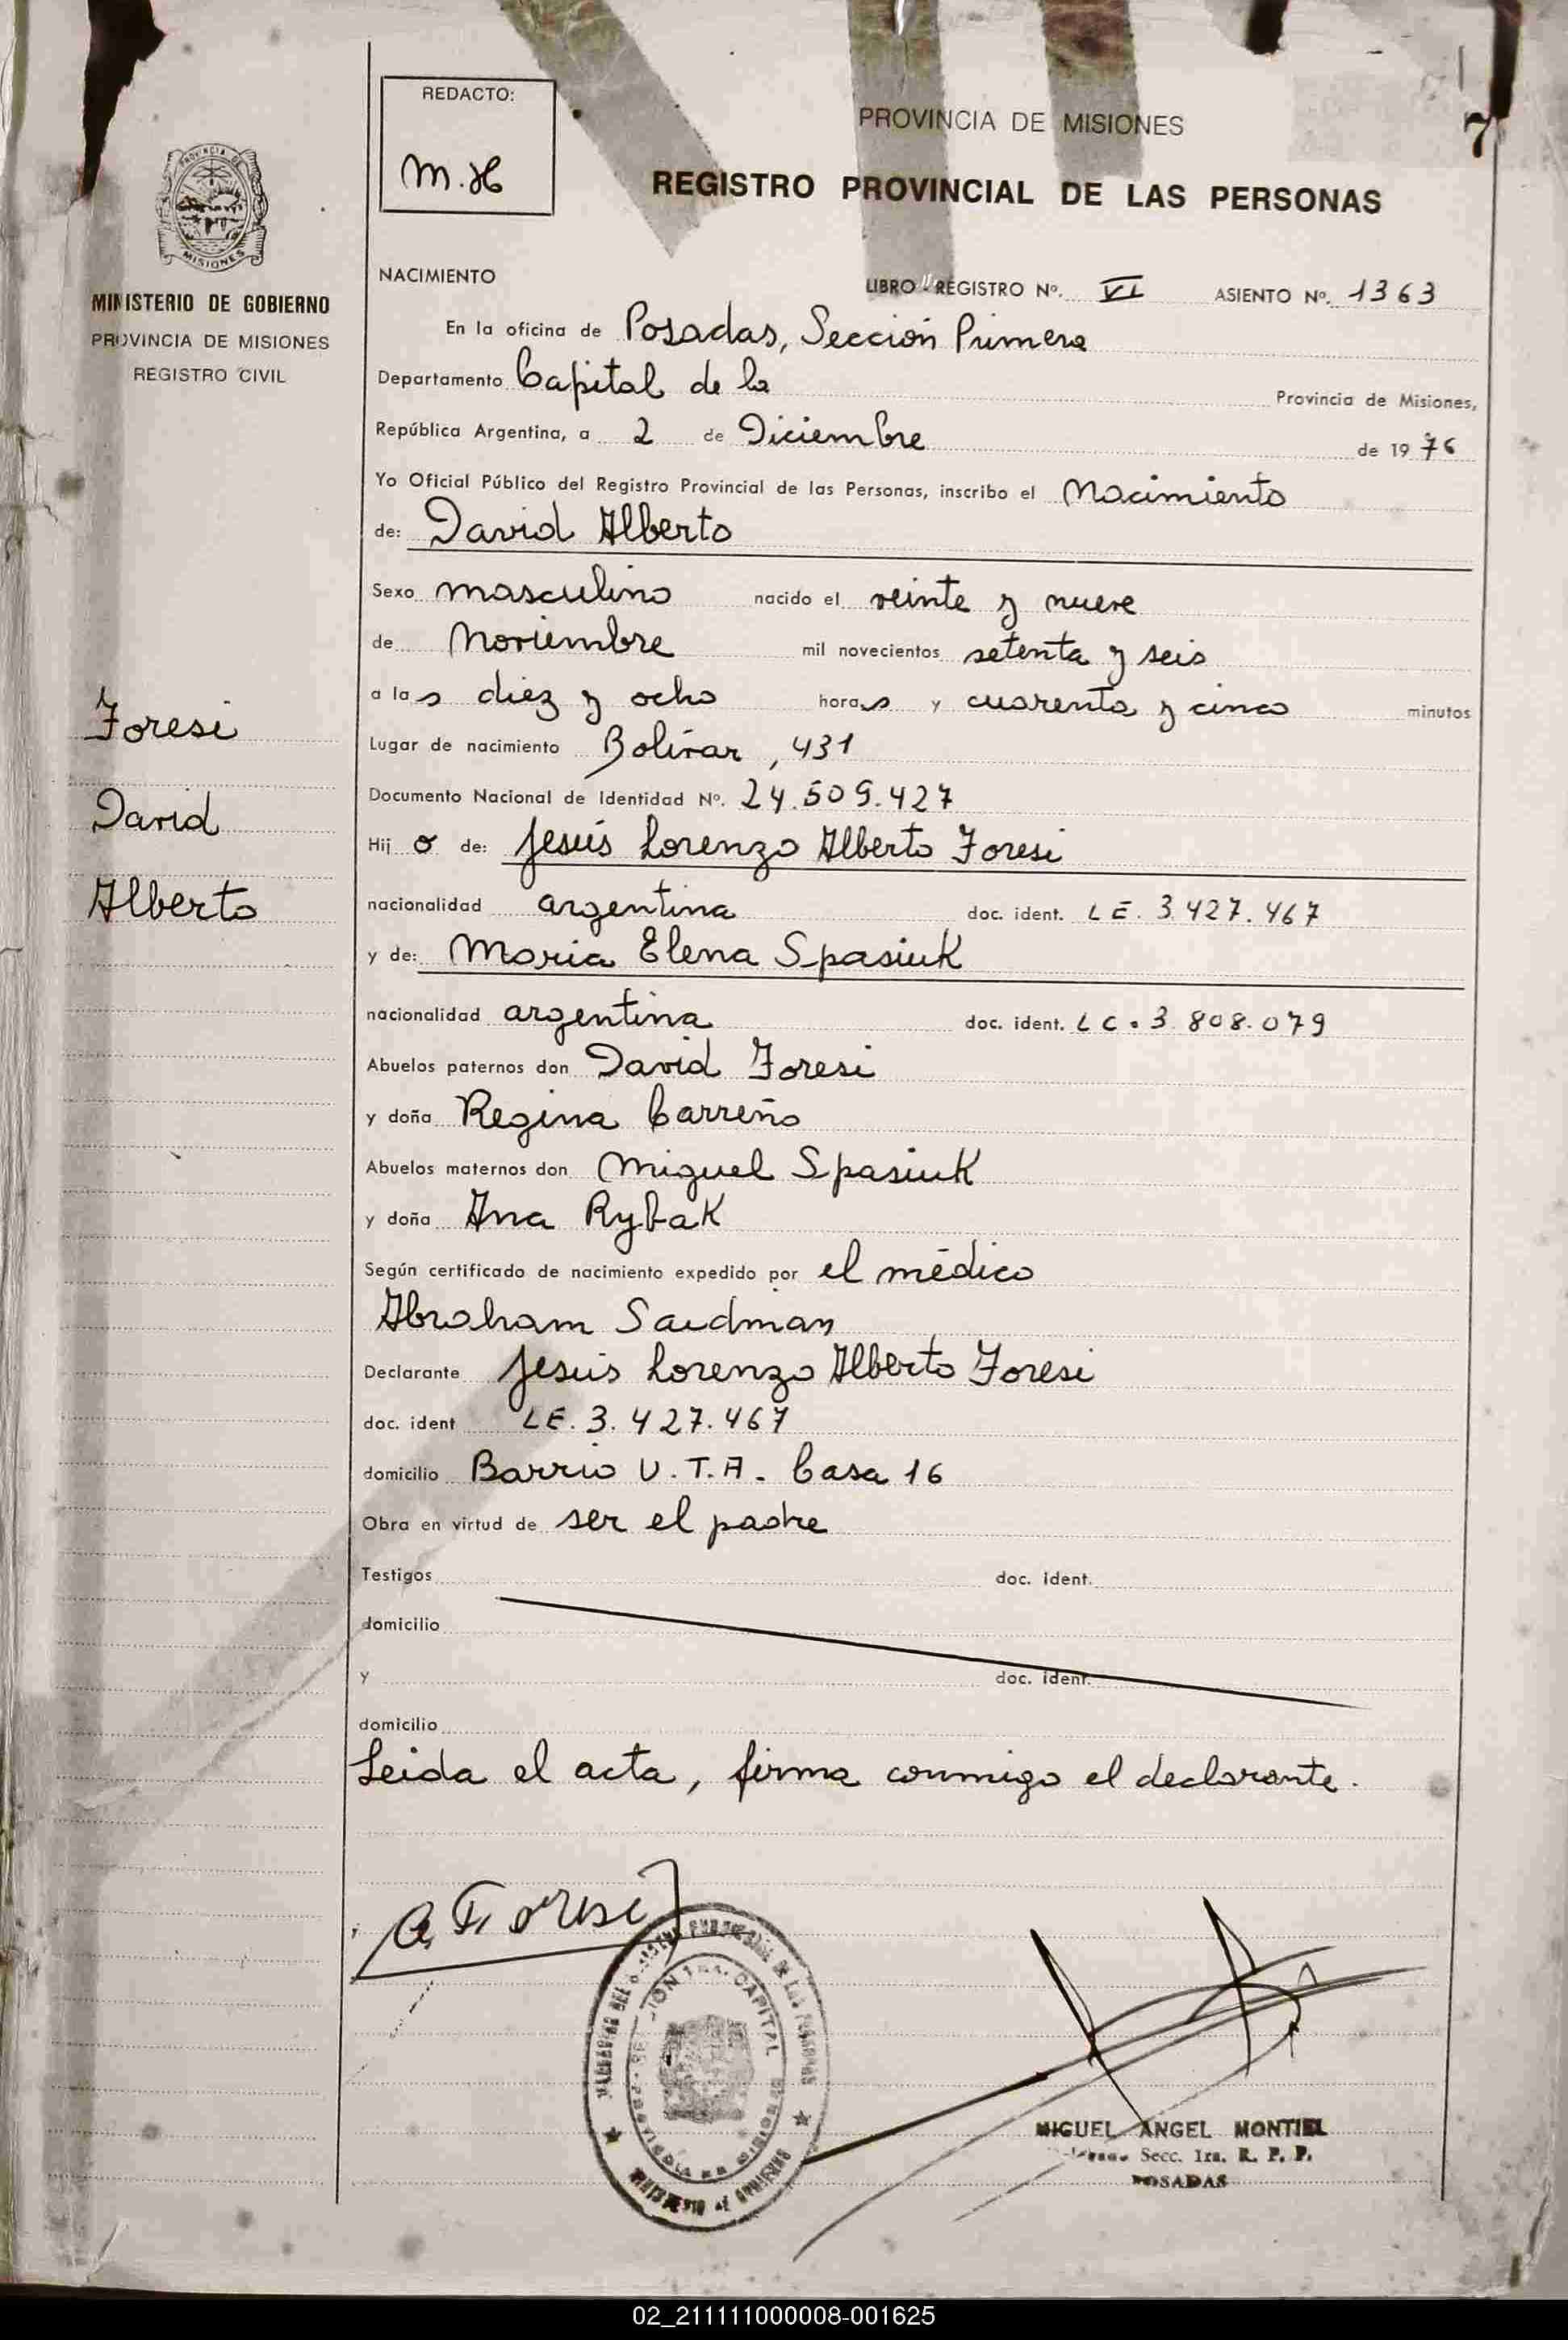 REDACTO:
M.H
PROVINCIA DE MISIONES
7
REGISTRO PROVINCIAL DE LAS PERSONAS
PROVINCIA DE
MISIONES
MINISTERIO DE GOBIERNO
PROVINCIA DE MISIONES
REGISTRO CIVIL
NACIMIENTO
LIBRO - REGISTRO Nº. VI ASIENTO Nº. 1363
En la oficina de Posadas, Sección Primera
Departamento Capital de la Provincia de Misiones,
República Argentina, a 2 de Diciembre de 1976
Yo Oficial Público del Registro Provincial de las Personas, inscribo el Nacimiento
de: David Alberto
Sexo masculino nacido el veinte y nueve
de Noviembre mil novecientos setenta y seis
a las diez y ocho horas y cuarenta y cinco minutos
Foresi
Lugar de nacimiento Bolívar, 431
David
Documento Nacional de Identidad Nº. 24.509.427
Hijo de: Jesús Lorenzo Alberto Foresi
Alberto
nacionalidad argentina doc. ident. LE. 3.427.467
y de: Maria Elena Spasiuk
nacionalidad argentina doc. ident. LC. 3.808.079
Abuelos paternos don David Foresi
y doña Regina Carreño
Abuelos maternos don Miguel Spasiuk
y doña Ana Rybak
Según certificado de nacimiento expedido por el médico
Abraham Saidman
Declarante Jesús Lorenzo Alberto Foresi
doc. ident LE. 3.427.467
domicilio Barrio U.T.A. Casa 16
Obra en virtud de ser el padre
Testigos doc. ident.
domicilio
y doc. ident.
domicilio
Leida el acta, firma conmigo el declarante.
A. Foresi
CAPITAL
MIGUEL ANGEL MONTIEL
Secc. 1ra. R. P. P.
POSADAS
02_211111000008-001625